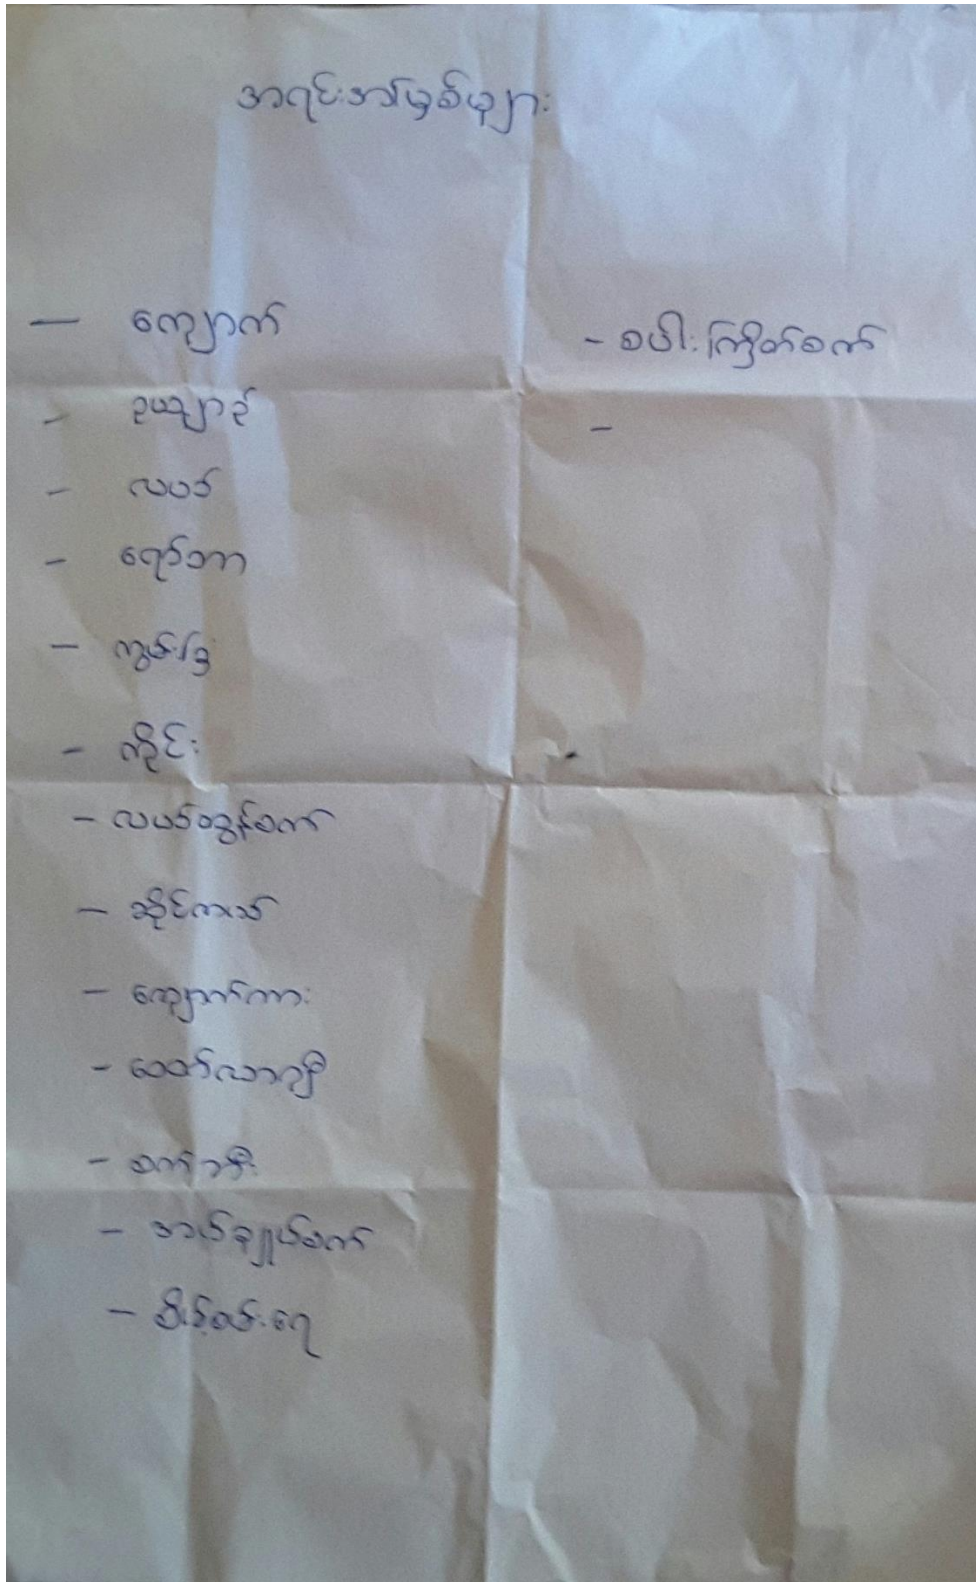 အရင်းအမြစ်များ
— ကျောက်
- ဥယျာဉ်
- လယ်
- ရော်ဘာ
- ကျွန်းခြံ
- ကိုင်း
- လယ်ထွန်စက်
- ဆိုင်ကယ်
- ကျောက်ကား
- ထော်လာဂျီ
- စက်
- အပ်ချုပ်စက်
- စိမ့်စမ်းရေ
- စပါးကြိတ်စက်
-